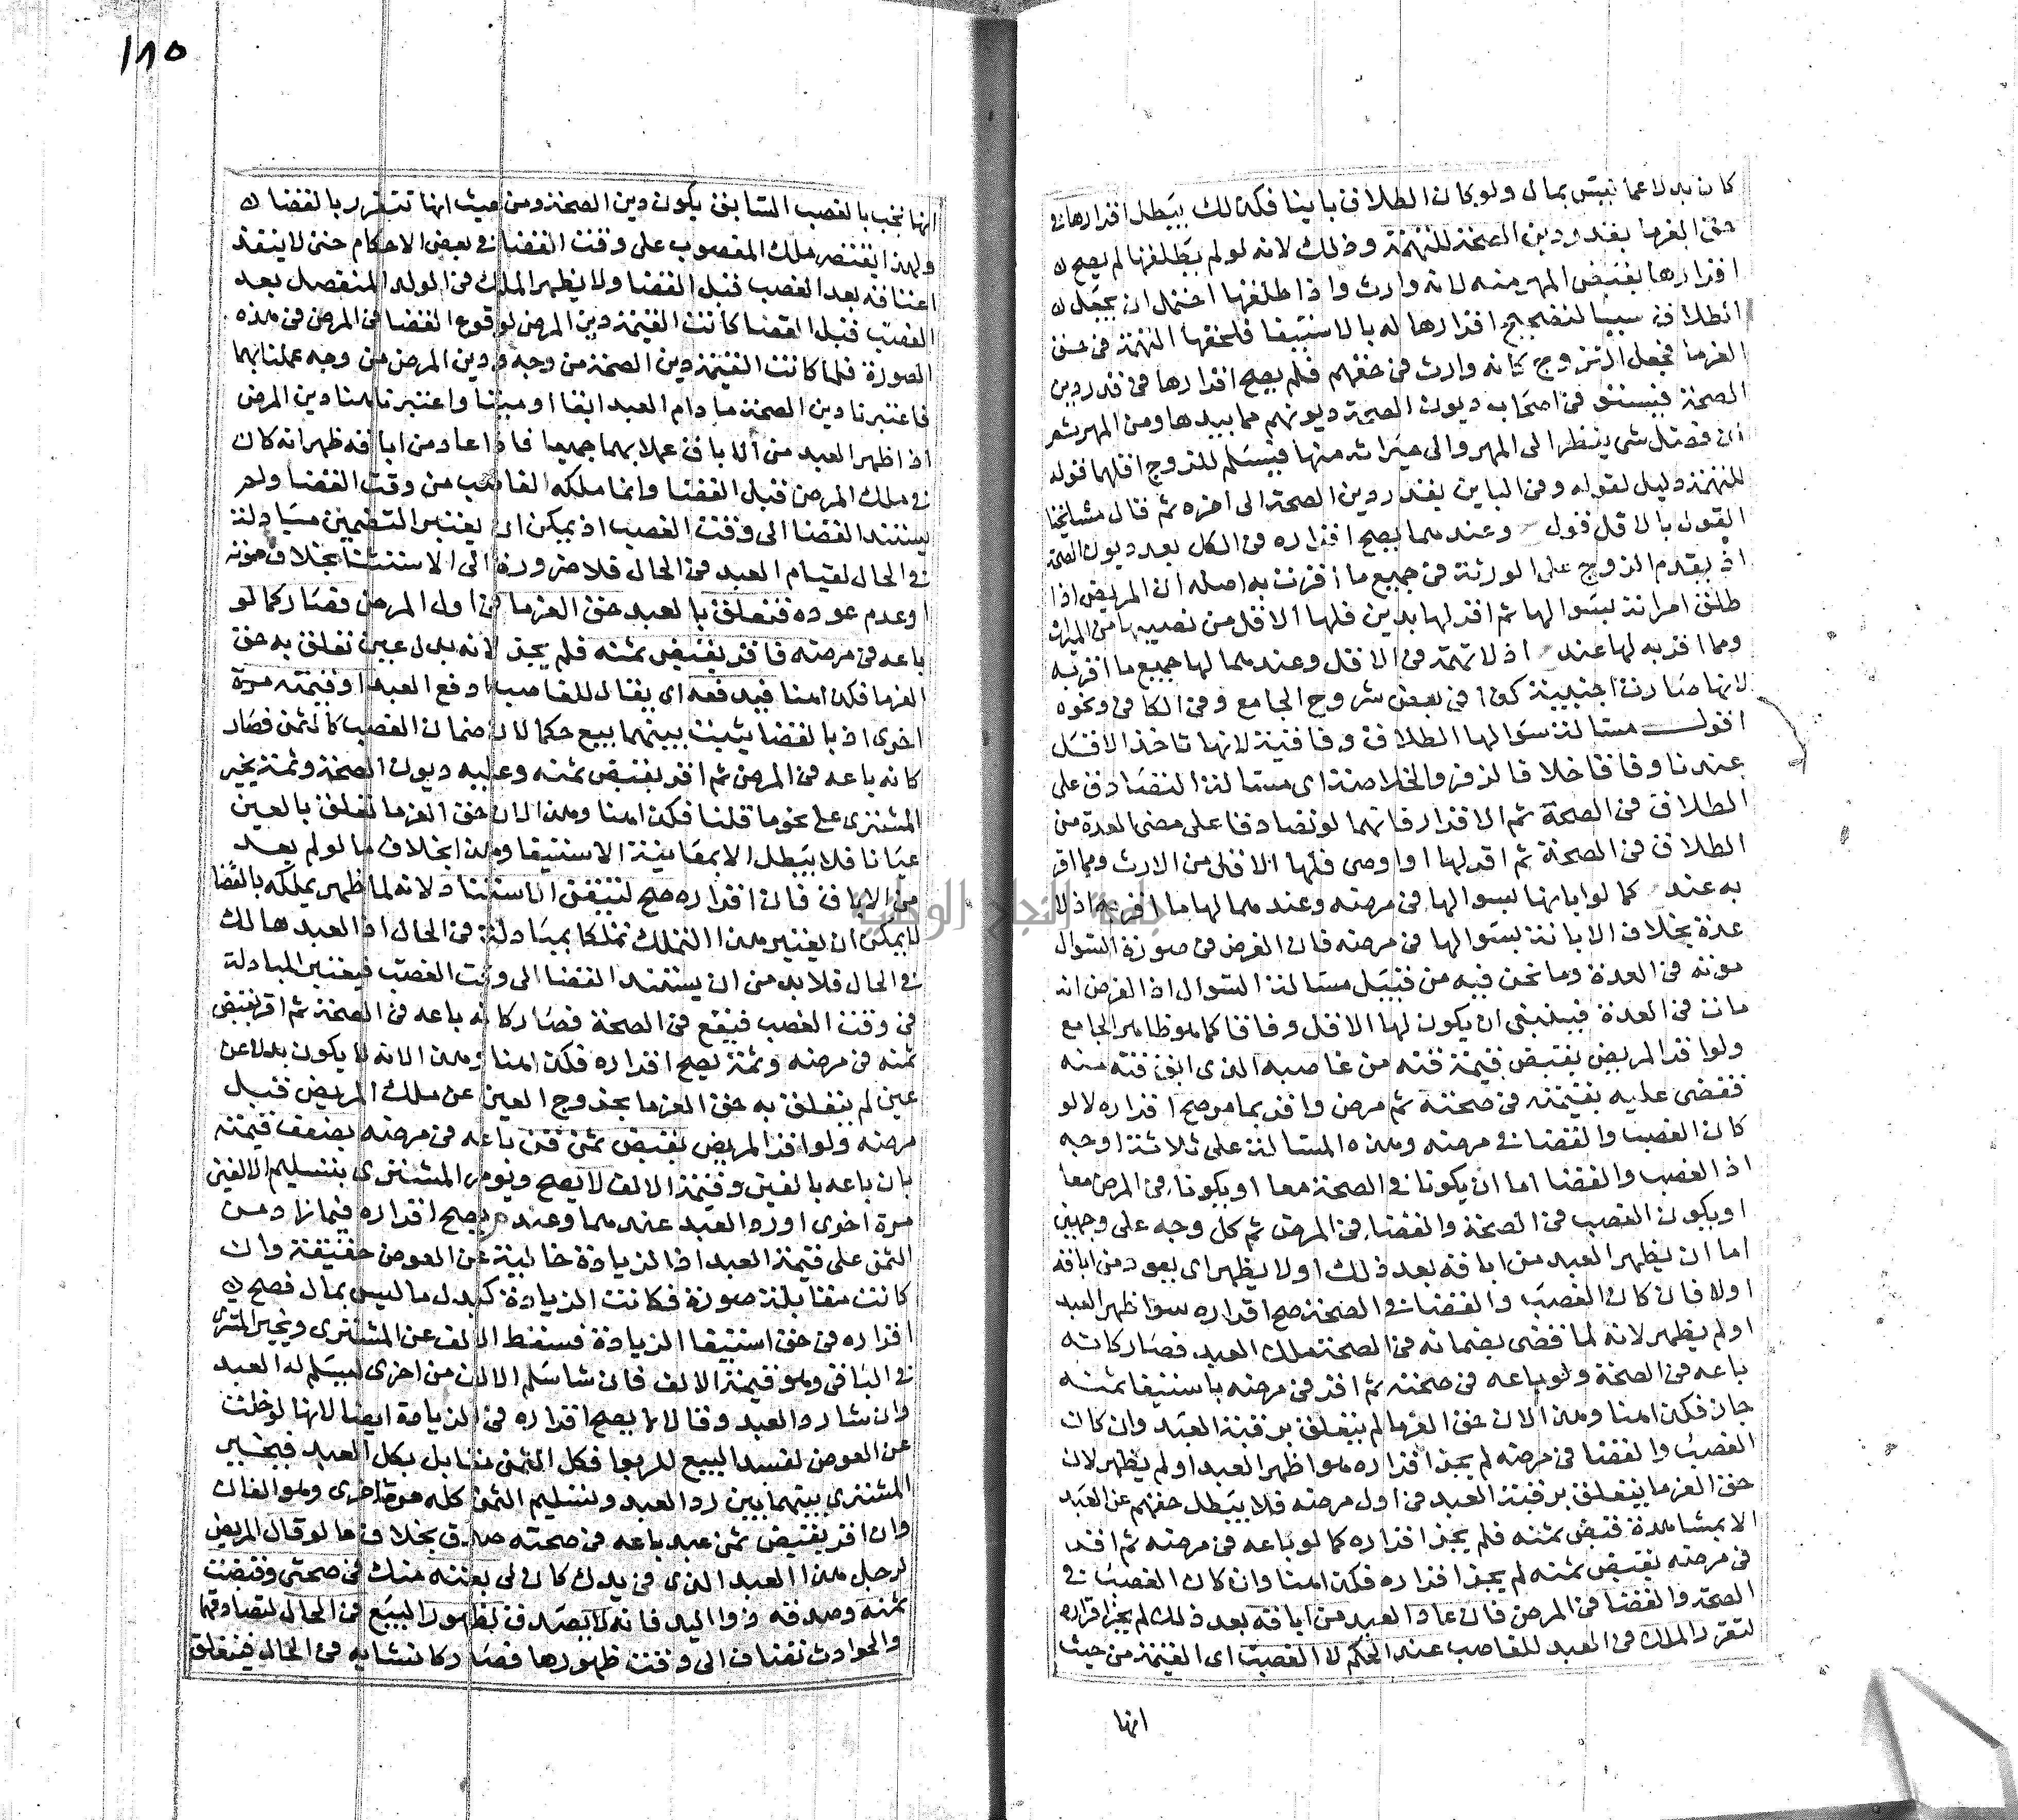 كان بدلا عما ليس بمال ولو كان الطلاق باينا فكذلك يبطل اقرارها في
حق الغرما بقدر دين الصحة للتهمة وذلك لانه لو لم يطلقها لم يصح
اقرارها بقبض المهر منه لانه وارث واذا طلقها احتمل ان يجعل
الطلاق سببا لتصحيح اقرارها له بالاستيفا فلحقها التهمة في حق
الغرما فجعل الزوج كانه وارث في حقهم فلم يصح اقرارها في قدر دين
الصحة فيستوفى اصحاب ديون الصحة ديونهم مما بيدها ومن المهر ثم
ان فضل شي ينظر الى المهر والى ميراثه منها فيسلم للزوج اقلهما قوله
للتهمة دليل لقوله وفي الباين بقدر دين الصحة الى اخره ثم قال مشايخنا
القول بالاقل قول وعندهما يصح اقراره في الكل بعد ديون الصحة
اذ يقدم الزوج على الورثة في جميع ما اقرت به اصله ان المريض اذا
طلق امراته بسوالها ثم اقر لها بدين فلها الاقل من نصيبها من الميراث
ومما اقر به لها عند اذ لا تهمة في الاقل وعندهما لها جميع ما اقر به
لانها صارت اجنبية كذا في بعض شروح الجامع وفي الكافي ونحوه
اقول مسئالة سوالها الطلاق وفاقية لانها تاخذ الاقل
عندنا وفاقا خلافا لزفر والخلاصة اى مسئالة التصادق على
الطلاق في الصحة ثم الاقرار فانهما لو تصادقا على مضى العدة من
الطلاق في الصحة ثم اقر لها او اوصى فلها الاقل من الارث ومما اقر
به عند كما لو ابانها بسوالها في مرضه وعندهما لها ما اقر به اذ لا
عدة بخلاف الابانة بسوالها في مرضه فان الفرض في صورة السوال
موته في العدة وما نحن فيه من قبيل مسئالة السوال اذ الفرض انه
مات في العدة فينبغي ان يكون لها الاقل وفاقا كما هو ظاهر الجامع
ولو اقر المريض بقبض قيمة قنه من غاصبه الذى ابق قنه منه
فقضى عليه بقيمته في صحته ثم مرض واقر بما مر صح اقراره لا لو
كان الغصب والقضا في مرضه وهذه المسئالة على ثلاثة اوجه
اذ الغصب والقضا اما ان يكونا في الصحة معا او يكونا في المرض معا
او يكون الغصب في الصحة والقضا في المرض ثم كل وجه على وجهين
اما ان يظهر العبد من اباقه بعد ذلك او لا يظهر اى يعود من اباقه
اولا فان كان الغصب والقضا في الصحة صح اقراره سوا ظهر العبد
او لم يظهر لانه لما قضى بضمانه في الصحة ملك العبد فصار كانه
باعه في الصحة ولو باعه في صحته ثم اقر في مرضه باستيفا ثمنه
جاز فكذا هنا وهذا لان حق الغرما لم يتعلق برقبة العبد وان كان
الغصب والقضا في مرضه لم يجز اقراره سوا ظهر العبد او لم يظهر لان
حق الغرما يتعلق برقبة العبد في اول مرضه فلا يبطل حقهم عن العبد
الا بمشاهدة قبض ثمنه فلم يجز اقراره كما لو باعه في مرضه ثم اقر
في مرضه بقبض ثمنه لم يجز اقراره فكذا هنا وان كان الغصب في
الصحة والقضا في المرض فان عاد العبد من اباقه بعد ذلك لم يجز اقراره
لتقرر الملك في العبد للغاصب عند الحكم لا الغصب اى القيمة من حيث
انها
١٨٥
انها تجب بالغصب السابق يكون دين الصحة ومن حيث انها تتقرر بالقضا
ولهذا يقتصر ملك المغصوب على وقت القضا في بعض الاحكام حتى لا ينفذ
اعتاقه بعد الغصب قبل القضا ولا يظهر الملك في الولد المنفصل بعد
الغصب قبل القضا كانت القيمة دين المرض لوقوع القضا في المرض في هذه
الصورة فلما كانت القيمة دين الصحة من وجه ودين المرض من وجه عملنا بهما
فاعتبرنا دين الصحة ما دام العبد ابقا او ميتا واعتبرنا هنا دين المرض
اذا ظهر العبد من الاباق عملا بهما جميعا فاذا عاد من اباقه ظهر انه كان
في ملك المرض قبل القضا وانما ملكه الغاصب من وقت القضا ولم
يستند القضا الى وقت الغصب اذ يمكن ان يعتبر التضمين مبادلة
في الحال لقيام العبد في الحال فلا ضرورة الى الاستثنا بخلاف موته
او عدم عوده فتعلق بالعبد حق الغرما في اول المرض فصار كما لو
باعه في مرضه فاقر بقبض ثمنه فلم يجز لانه بدل عين تعلق به حق
الغرما فكذا هنا فيدفعه اى يقال للغاصب ادفع العبد او قيمته مرة
اخرى اذ بالقضا يثبت بينهما بيع حكما لان ضمان الغصب كالثمن فصار
كانه باعه في المرض ثم اقر بقبض ثمنه وعليه ديون الصحة وثمة يخير
المشترى على نحو ما قلنا فكذا هنا وهذا لان حق الغرما تعلق بالعين
عيانا فلا يبطل الا بمعاينة الاستيفا وهذا بخلاف ما لو لم يعد
من الاباق فان اقراره صح لتيقن الاستثنا ولانه لما ظهر يملكه بالقضا
لا يمكن ان يعتبر هذا التملك تملكا بمبادلة في الحال اذ العبد هالك
في الحال فلا بد من ان يستند القضا الى وقت الغصب فيعتبر المبادلة
في وقت الغصب فيقع في الصحة فصار كانه باعه في الصحة ثم اقر بقبض
ثمنه في مرضه وثمة يصح اقراره فكذا هنا وهذا لانه لا يكون بدلا عن
عين لم يتعلق به حق الغرما بخروج العين عن ملك المريض قبل
مرضه ولو اقر المريض بقبض ثمن قن باعه في مرضه بضعف قيمته
بان باعه بالفين وقيمة الالف لا يصح ويؤمر المشترى بتسليم الالفين
مرة اخرى اورد العبد عندهما وعند يصح اقراره فيما زاد من
الثمن على قيمة العبد اذ الزيادة خالية عن العوض حقيقة وان
كانت مقابلة صورة فكانت الزيادة كبدل ما ليس بمال فصح
اقراره في حق استيفا الزيادة فسقط الالف عن المشترى ويخير المشترى
في الباقي وهو قيمة الالف فان شا سلم الالف من اخرى ليسلم له العبد
وان شا رد العبد وقالا لا يصح اقراره في الزيادة ايضا لانها لو خلت
عن العوض لفسد البيع للربوا فكل الثمن مقابل بكل العبد فيخير
المشترى بينهما بين رد العبد وتسليم الثمن كله مرة اخرى وهو الفان
وان اقر بقبض ثمن عبد باعه في صحته صدق بخلاف ما لو قال المريض
لرجل هذا العبد الذى في يدك كان لى بعته منك في صحتى وقبضت
ثمنه وصدقه ذوا اليد فانه لا يصدق لظهور البيع في الحال لتصادقهما
والحوادث تضاف الى وقت ظهورها فصار كانشايه في الحال فيتعلق
جامعة النجاح الوطنية